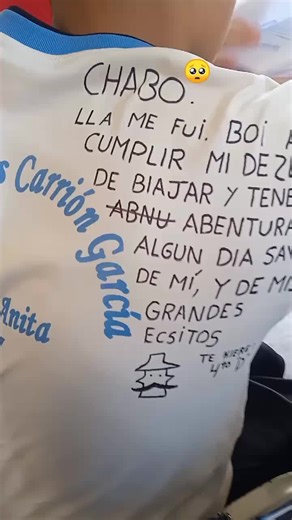 CHABO.
LLA ME FUI. BOI A
CUMPLIR MI DEZE
DE BIAJAR Y TENE
ABNU ABENTURA
ALGUN DIA SAV
DE MÍ, Y DE MIS
GRANDES
ECSITOS
TE KIERE
4to D
s Carrión García
Anita